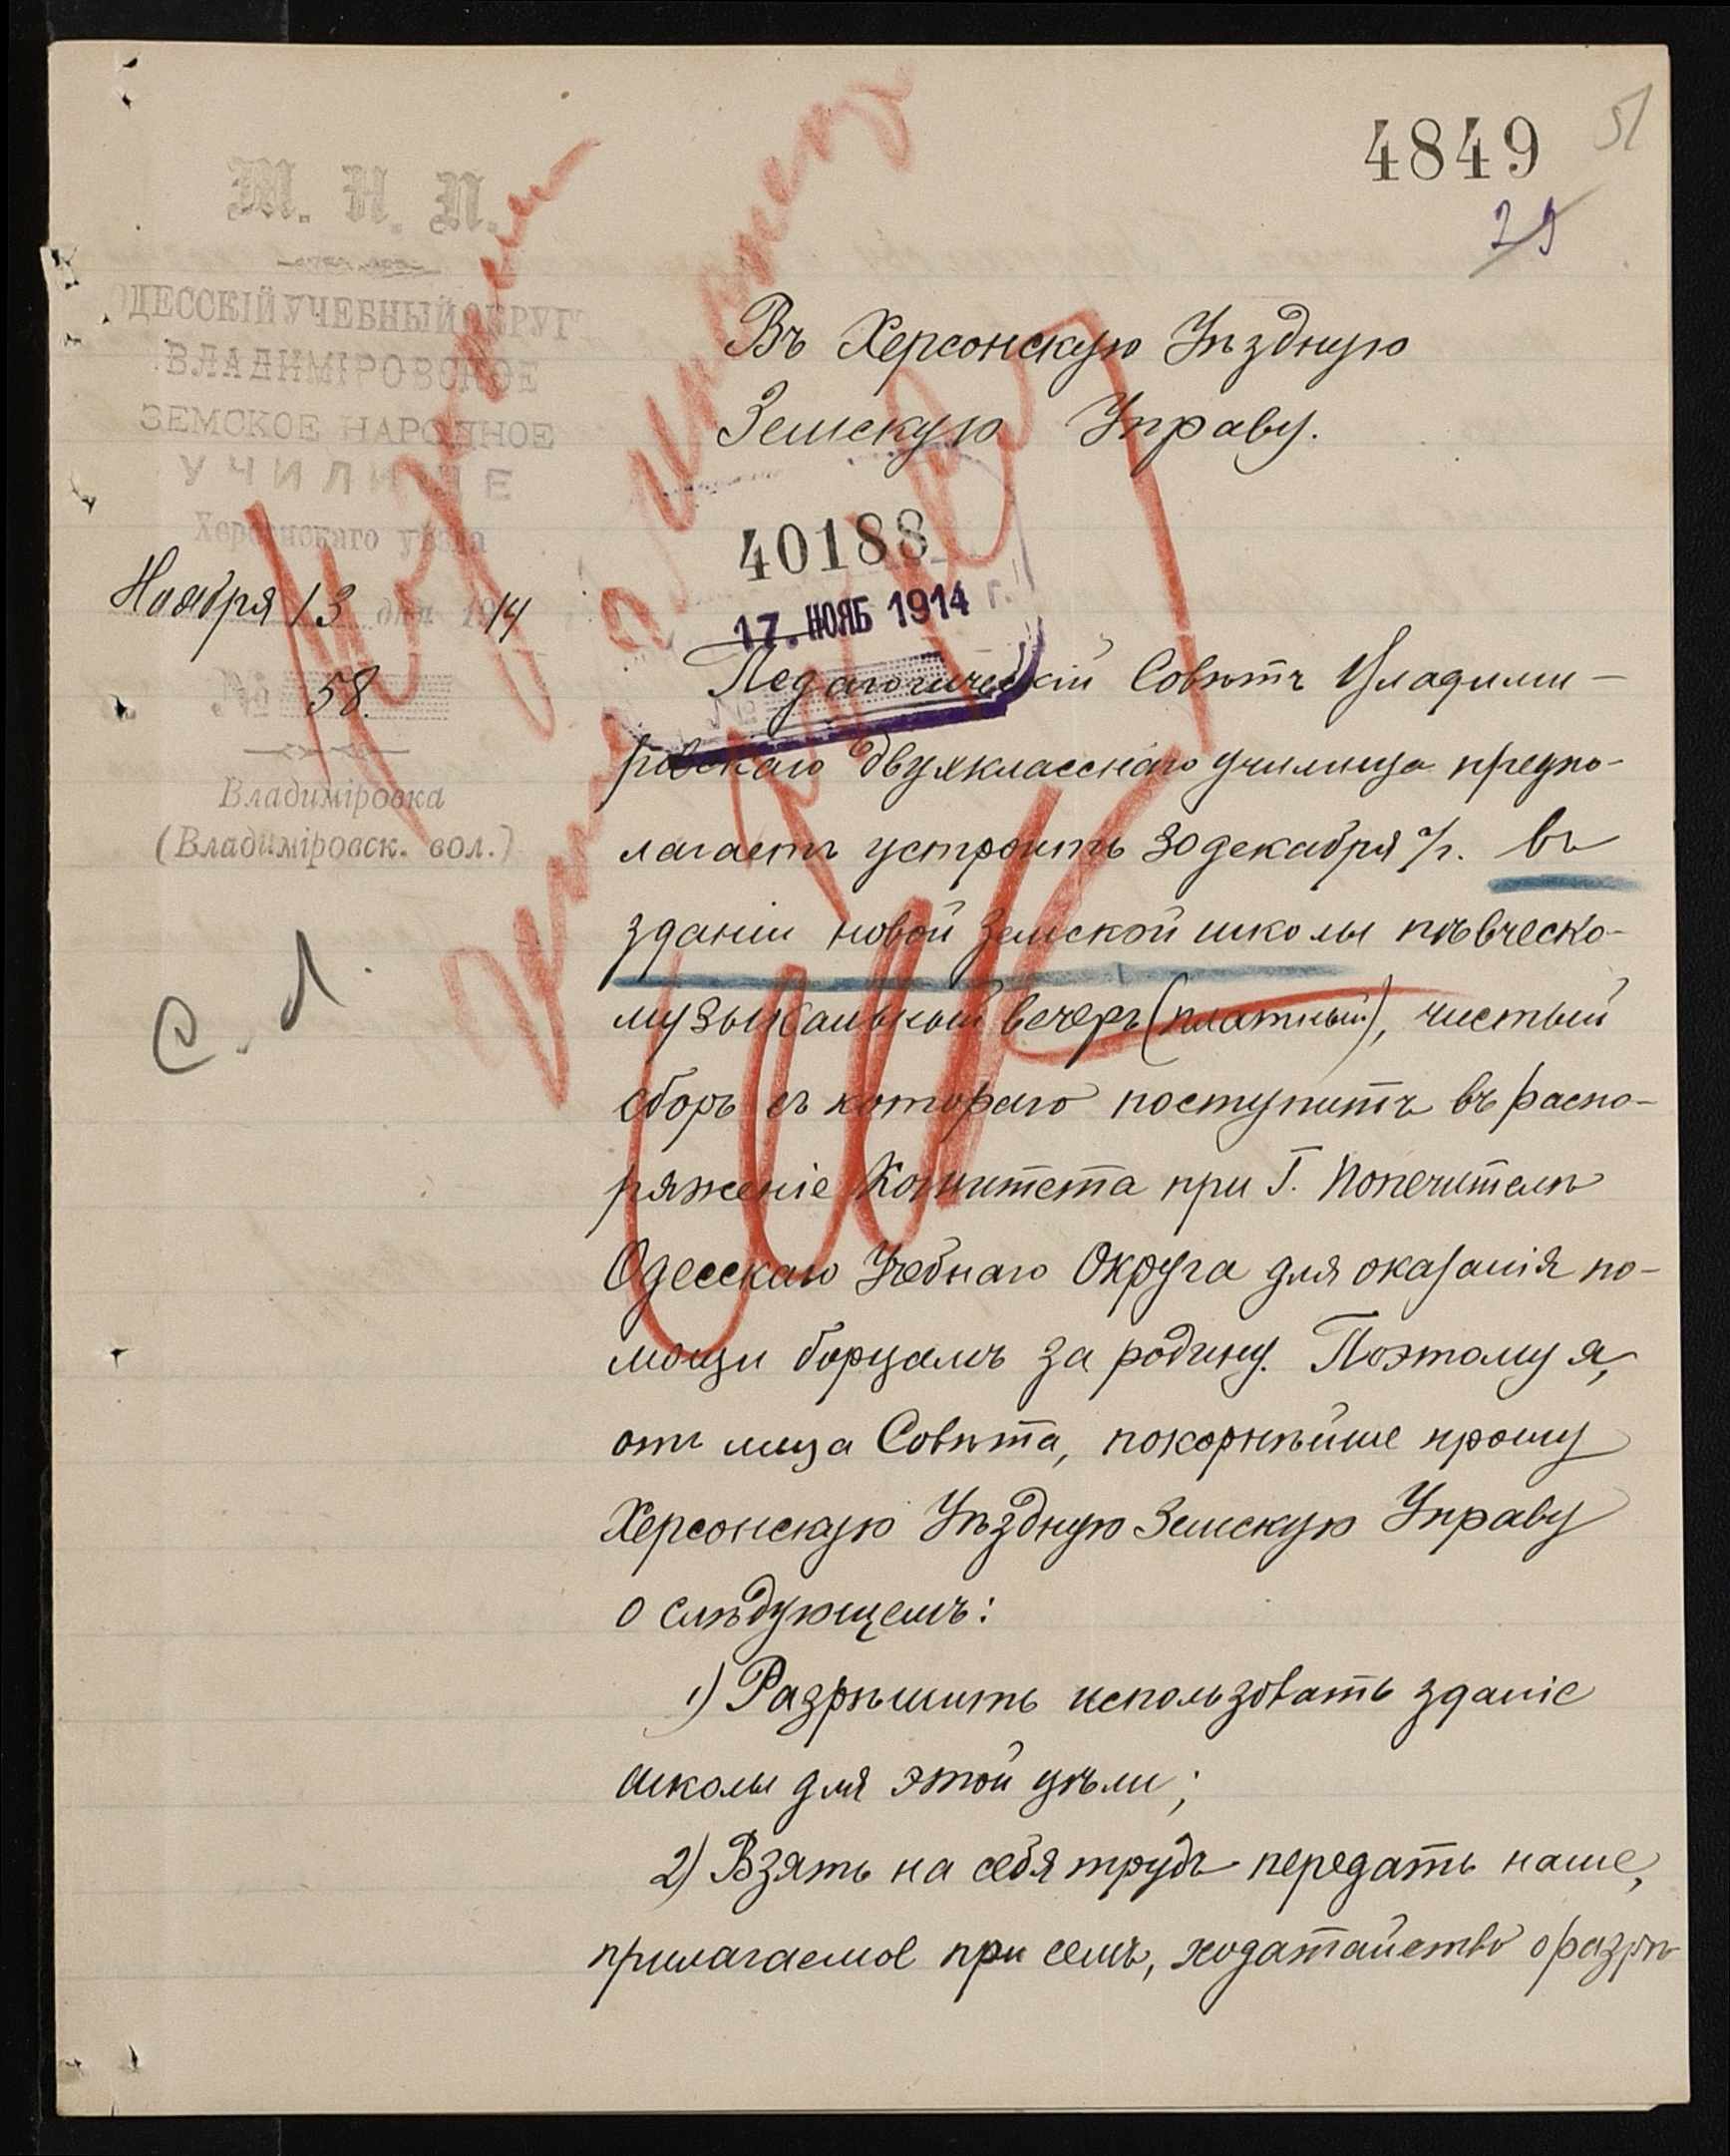 4849
51
29
М. Н. П.
ОДЕССКІЙ УЧЕБНЫЙ ОКРУГЪ
ВЛАДИМІРОВСКОЕ
ЗЕМСКОЕ НАРОДНОЕ
УЧИЛИЩЕ
Херсонскаго уѣзда
Ноября 13 дня 1914
№ 58.
Владиміровка
(Владиміровск. вол.)
Въ Херсонскую Уѣздную
Земскую Управу.
40188
17. НОЯБ 1914 г.
№
Педагогическій Совѣтъ Владими-
ровскаго двухкласснаго училища предпо-
лагаетъ устроить 30 декабря с/г. въ
зданіи новой земской школы пѣвческо-
музыкальный вечеръ (платный), чистый
сборъ съ котораго поступитъ въ распо-
ряженіе Комитета при Г. Попечителѣ
Одесскаго Учебнаго Округа для оказанія по-
мощи борцамъ за родину. Поэтому я,
отъ лица Совѣта, покорнѣйше прошу
Херсонскую Уѣздную Земскую Управу
о слѣдующемъ:
1) Разрѣшить использовать зданіе
школы для этой цѣли;
2) Взять на себя трудъ передать наше,
прилагаемое при семъ, ходатайство о разрѣ